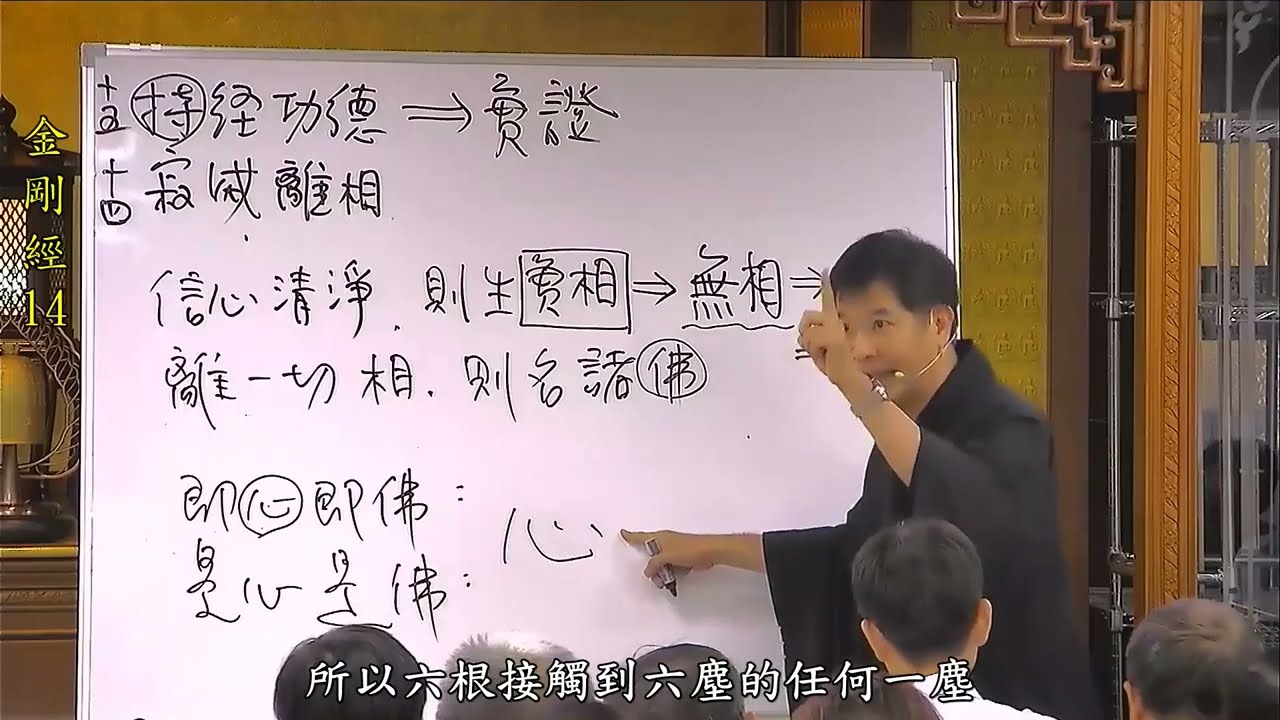 金剛經14
十五 持経功德⇒實證
十四 寂滅離相
信心清淨.則生實相→無相⇒
離一切相.則名諸佛
即心即佛:
是心是佛:
心
所以六根接觸到六塵的任何一塵